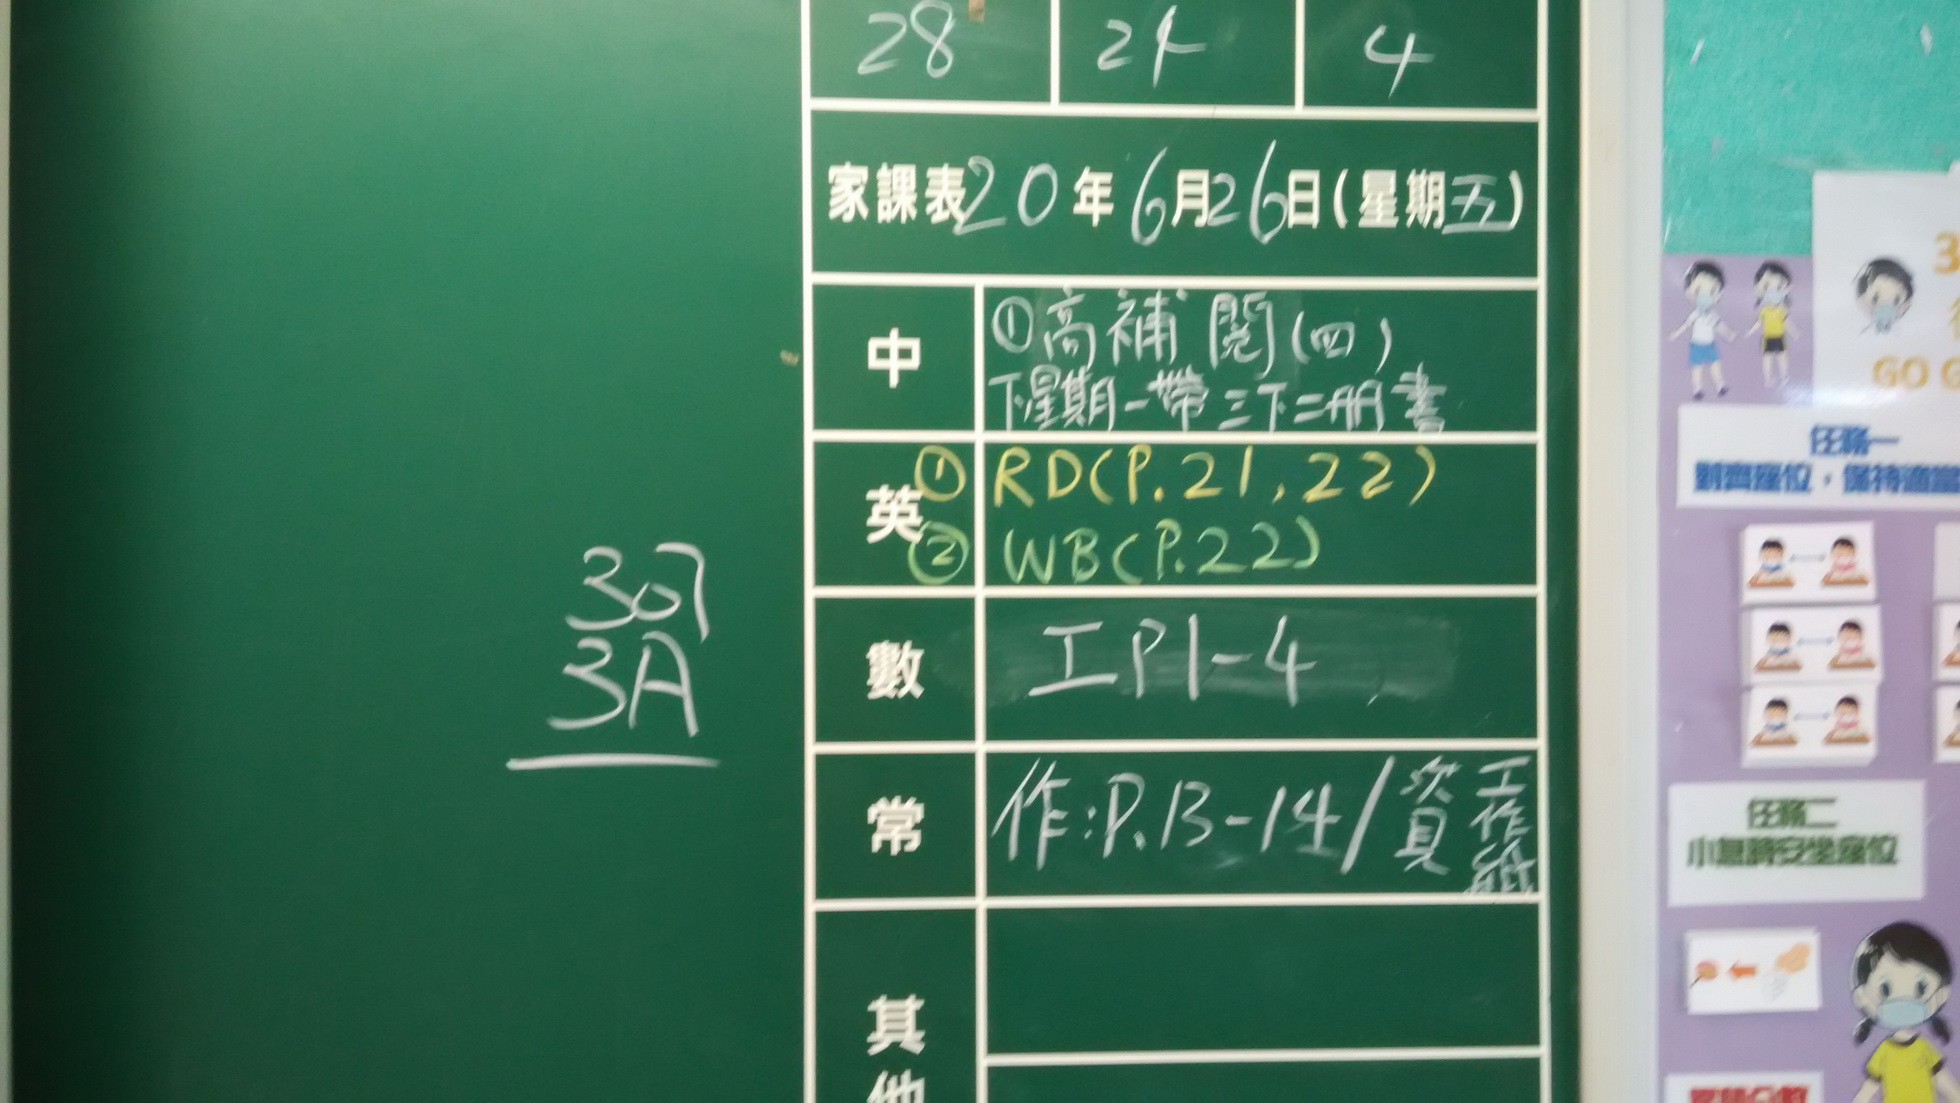 28 24 4
家課表20年6月26日(星期五)
中
①高補閱(四)
下星期一帶三下二冊書
英
① RD(P.21,22)
② WB(P.22)
數
工P1-4
常
作:P.13-14/資 工作紙
其他
307
3A
3
GO G
任務一
對齊座位,保持適當
任務二
小息時安坐座位